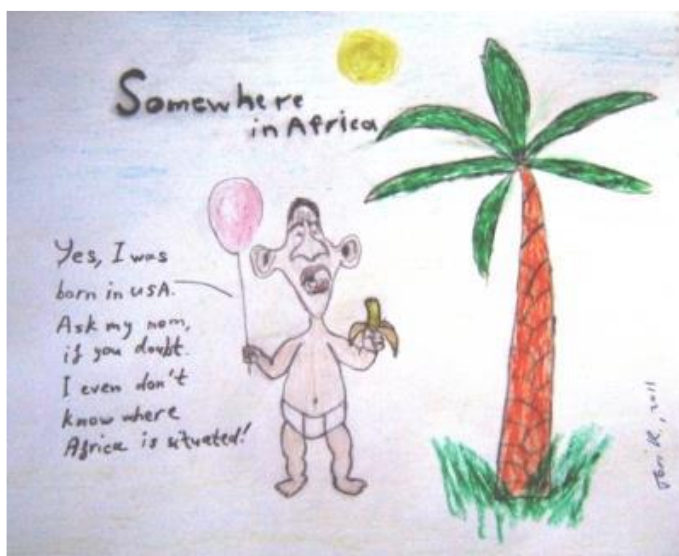 Somewhere
in Africa
Yes, I was
born in USA.
Ask my mom,
if you doubt.
I even don't
know where
Africa is situated!
2011